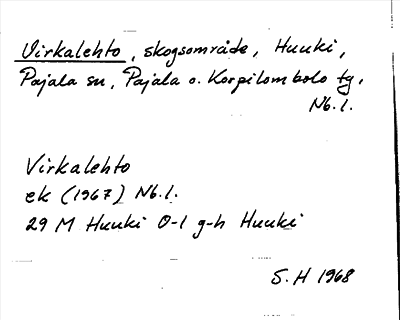 Virkalehto, skogsområde, Huuki,
Pajala sn, Pajala o. Korpilombolo tg,
Nb.l.
Virkalehto
ek (1967) Nb.l.
29 M Huuki 0-1 g-h Huuki
S.H 1968